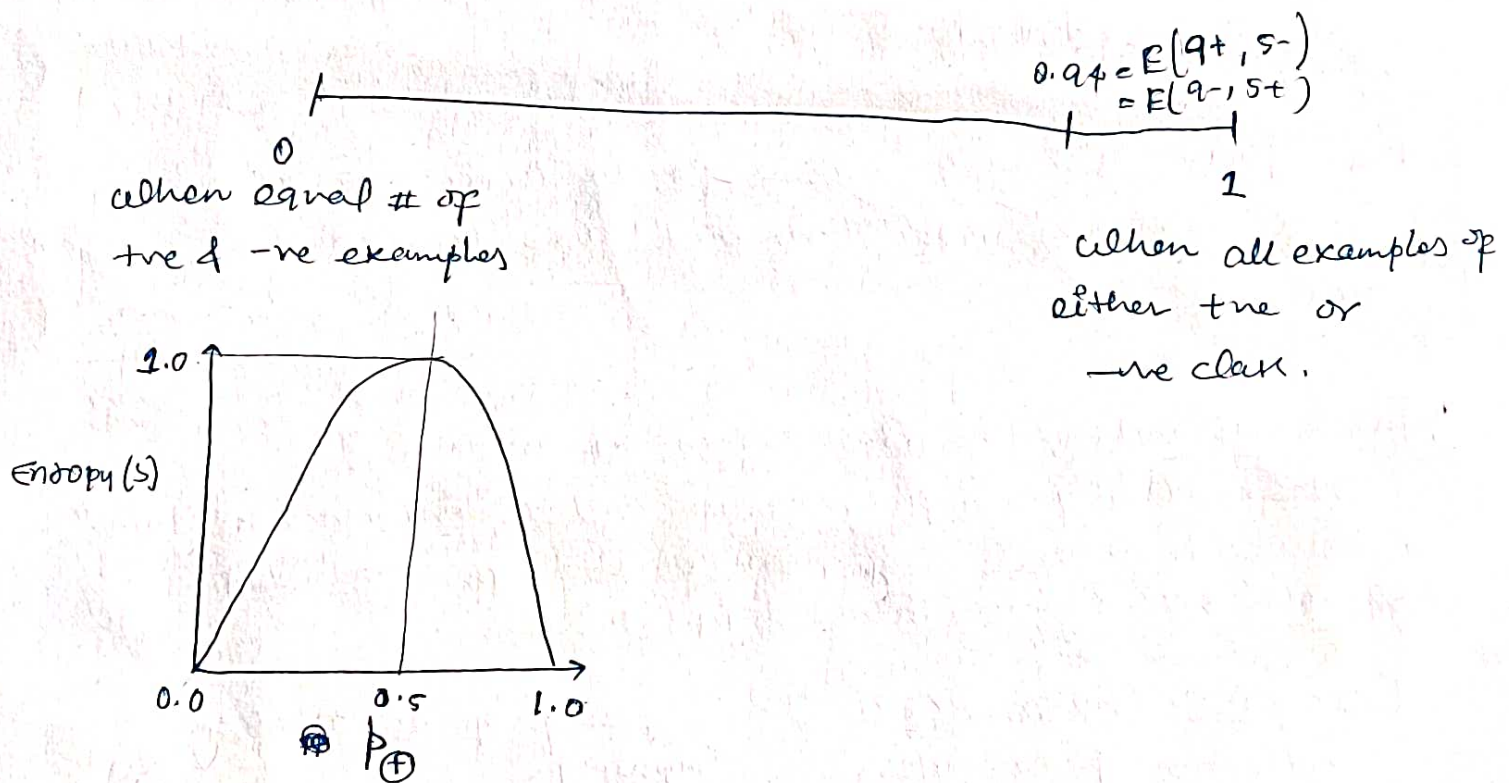 0.94 = E(9+, 5-)
= E(9-, 5+)
0
1
When equal # of
+ve & -ve examples
When all examples of
either +ve or
-ve class.
1.0
Entropy (S)
0.0
0.5
1.0
p⊕